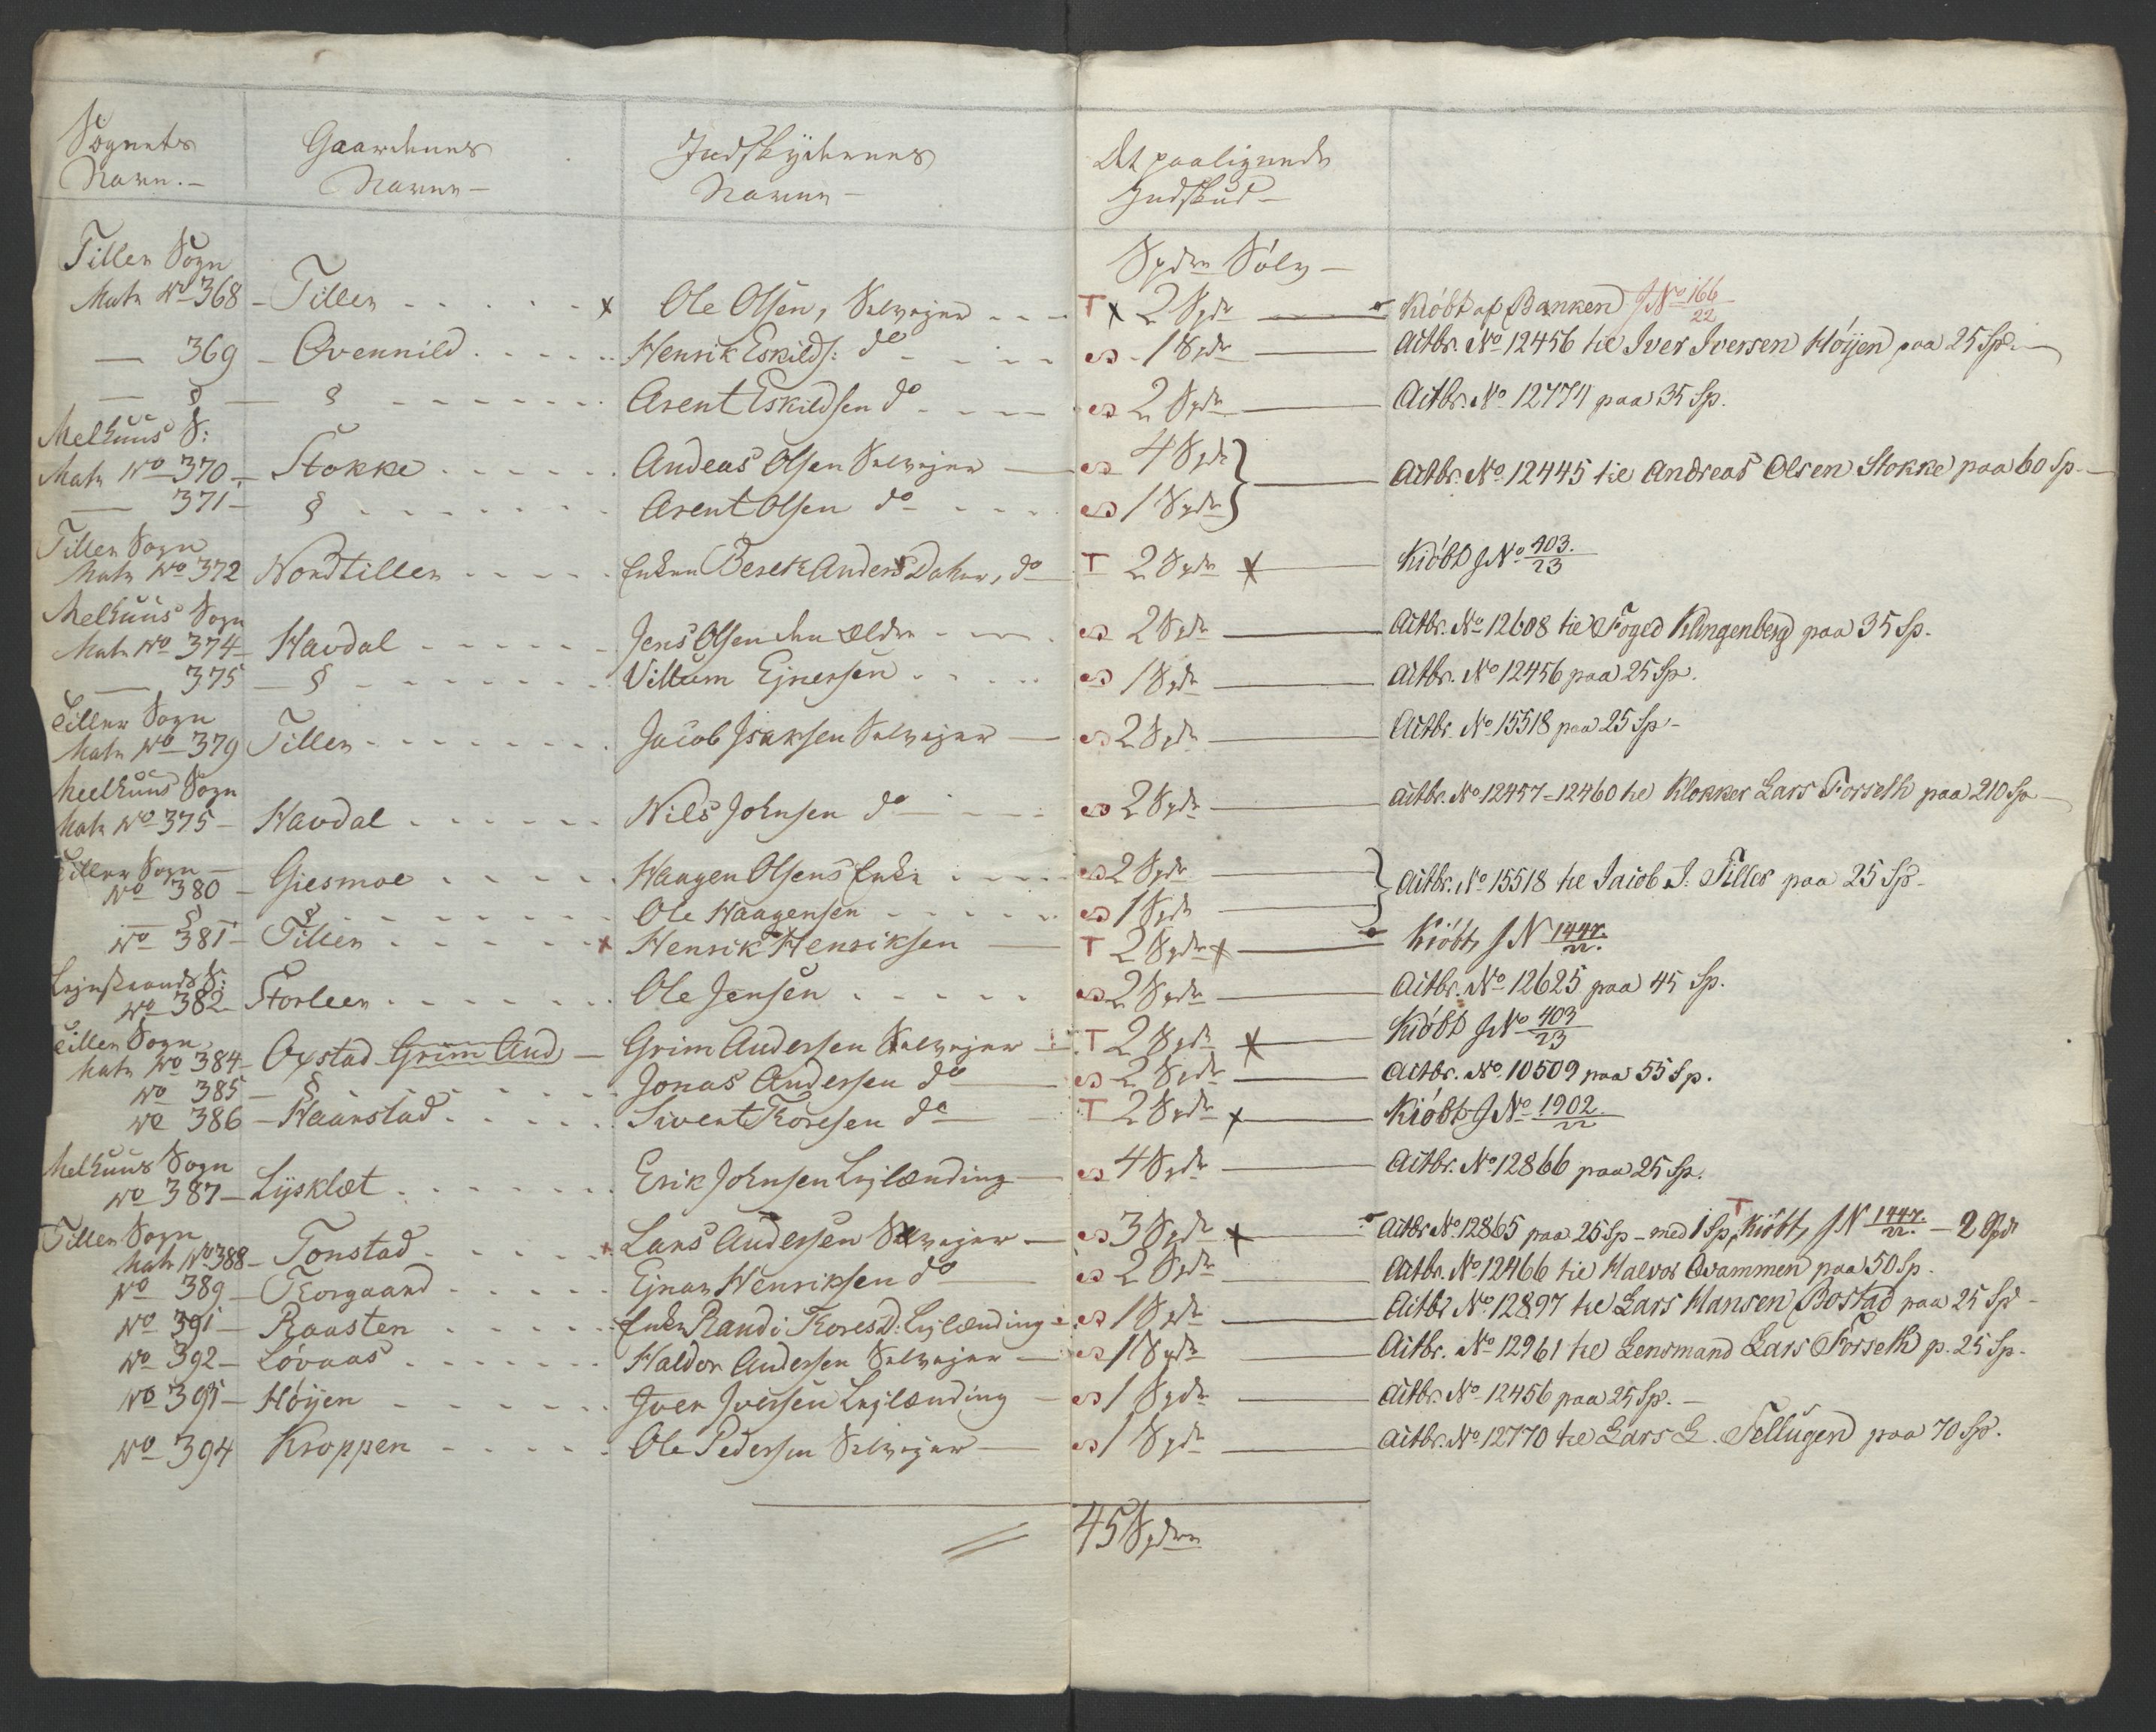 Sognets Navn.– Gaardenes Navne– Indskydernes Navne– Det paalignede Indskud–
Tiller Sogn Spdr Sølv–
Matr No 368 – Tiller x Ole Olsen, Selvejer T x 2 Spdr Kiöbt af Banken J No 166/22
— 369 – Qvennild Henrik Eskilds: do 1 Spdr Actbr. No 12456 til Iver Iversen Höÿen paa 25 Sp.
— § — § Arent Eskildsen do 2 Spdr Actbr. No 12774 paa 35 Sp.
Melhuus S:
Matr No 370 – Stokke Andeas Olsen Selvejer 4 Spdr } Actbr. No 12445 til Andreas Olsen Stokke paa 60 Sp.
— 371 – § Arent Olsen do 1 Spdr }
Tiller Sogn
Matr No 372 Nordtiller Enken Beret Anders Dater, do T 2 Spdr x Kiöbt J No 403/23
Melhuus Sogn
Matr No 374 – Havdal Jens Olsen den ældre 2 Spdr Actbr. No 12608 til Foged Klingenberg paa 35 Sp.
— 375 – § Villum Ejnersen 1 Spdr Actbr. No 12456 paa 25 Sp.
Tiller Sogn
Matr No 379 Tiller Jacob Isaksen Selvejer 2 Spdr Actbr. No 15518 paa 25 Sp–
Meelhuus Sogn
Matr No 375 – Havdal Nils Johnsen do 2 Spdr Actbr. No 12457–12460 til Klokker Lars Forseth paa 210 Sp
Tiller Sogn –
No 380 – Giesmoe Haagen Olsens Enke 2 Spdr } Actbr. No 15518 til Jacob J. Tiller paa 25 Sp–
§ § Ole Haagensen 1 Spdr }
No 381 – Tiller x Henrik Henriksen T 2 Spdr x Kiöbt J N 1447./22.
Lejnstrands S:
No 382 Storleer Ole Jensen 2 Spdr Actbr. No 12625 paa 45 Sp.
Tiller Sogn
Matr No 384 – Oxstad Grim And Grim Andersen Selvejer T 2 Spdr x Kiöbt J No 403/23
No 385 – § Jonas Andersen do 2 Spdr Actbr. No 10509 paa 55 Sp.
No 386 – Haarstad Sivert Thoresen do T 2 Spdr x Kiöbt J No 1902./22
Melhuus Sogn
No 387 – Lÿsklæt Erik Johnsen Lejlænding 4 Spdr Actbr. No 12866 paa 25 Sp.
Tiller Sogn
Matr No 388 – Tonstad Lars Andersen Selvejer 3 Spdr x Actbr No 12865 paa 25 Sp – med 1 Sp, T Kiöbt, J N 1447./22. – 2 Spdr
No 389 – Torgaard Ejnar Henriksen do 2 Spdr Actbr. No 12466 til Halvor Qvammen paa 50 Sp.
No 391 – Raasten Enken Randi Thores D: Lejlænding 1 Spdr Actbr No 12897 til Lars Hansen Bostad paa 25 Sp–
No 392 – Lövaas Haldor Andersen Selvejer 1 Spdr Actbr. No 12961 til Lensmand Lars Forseth p. 25 Sp.
No 395 – Höÿen Iver Iversen Lejlænding 1 Spdr Actbr. No 12456 paa 25 Sp.–
No 394 Kroppen Ole Pedersen Selvejer 1 Spdr Actbr. No 12770 til Lars L. Tellugen paa 70 Sp.
45 Spdr